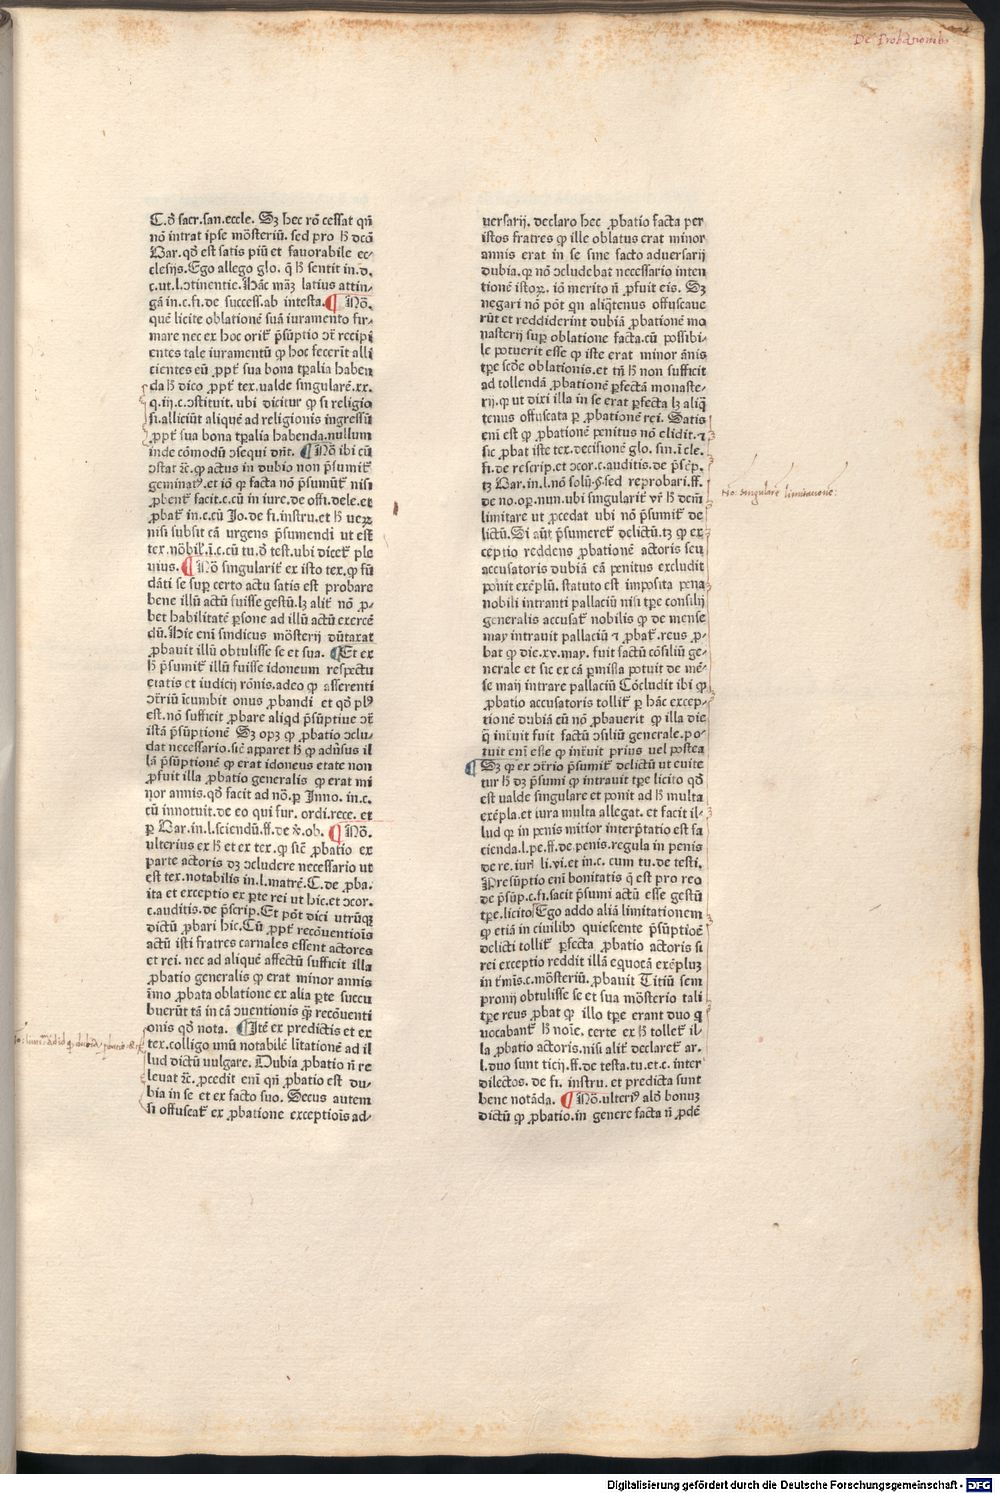 De Probationib
C.đ sacr.san.eccle. Sꝫ hec rō cessat qn̄
nō intrat ipse mōsteriū. sed pro ħ dcō
Bar. qđ est satis piū et fauorabile ec-
clesijs. Ego allego glo. q̄ ħ sentit in.d.
c.ut.l.ↄtinentie. Hāc mām̄ latius attin-
gā in.c.fi.de success.ab intesta. ¶ Nō.
quē licite oblationē suā iuramento fir-
mare nec ex hoc orit̄ p̄sūptio ↄt̄ recipi
entes tale iuramentū ꝙ hoc fecerīt alli
cientes eū ꝓpt̄ sua bona tꝑalia haben
da ħ dico ꝓpt̄ tex.ualde singularē.xx.
q.iij.c.ↄstituit. ubi dicitur ꝙ si religio
si.alliciūt aliquē ad religionis ingressū
ꝓpt̄ sua bona tꝑalia habenda.nullum
inde cōmodū ↄsequi dn̄t. ¶ Nō ibi cū
ↄstat ⁊c.ꝙ actus in dubio non p̄sumit̄
geminatꝰ.et iō ꝙ facta nō p̄sumūt̄ nisi
ꝓbent̄ facit.c.cū in iure.de offi.dele.et
ꝓbat̄ in.c.cū Jo.de fi.instru.et ħ ueꝝ
nisi subsit cā urgens p̄sumendi ut est
tex.nōbil̄.ī.c.cū tu.đ test.ubi dicet̄ ple
nius. ¶ Nō singularit̄ ex isto tex.ꝙ fū
dāti se suꝑ certo actu satis est probare
bene illū actū fuisse gestū.lꝫ alit̄ nō ꝓ-
bet habilitatē ꝑsone ad illū actū exercē
dū.Hic eni sindicus mōsterij dūtaxat
ꝓbauit illū obtulisse se et sua. ¶ Et ex
ħ p̄sumit̄ illū fuisse idoneum respectu
etatis et iudicij rōnis.adeo ꝙ asserenti
ↄt̄riū īcumbit onus ꝓbandi et qđ plꝰ
est.nō sufficit ꝓbare aliqd p̄sūptiue ↄt̄
istā p̄sūptionē Sꝫ opꝫ ꝙ ꝓbatio ↄclu-
dat necessario.sic̄ apparet ħ ꝙ adūsus il
lā p̄sūptionē ꝙ erat idoneus etate non
ꝓfuit illa ꝓbatio generalis ꝙ erat mi
nor annis.qđ facit ad nō.ꝑ Inno. in.c.
cū innotuit.de eo qui fur. ordi.rece. et
ꝑ Bar.in.l.sciendū.ff.de v̄.ob. ¶ Nō.
ulterius ex ħ et ex tex.ꝙ sic̄ ꝓbatio ex
parte actoris dꝫ ↄcludere necessario ut
est tex.notabilis in.l.matrē.C.de ꝓba.
ita et exceptio ex ꝑte rei ut hic.et ↄcor.
c.auditis.de p̄scrip.Et pōt dici utrūqꝫ
dictū ꝓbari hic.Cū ꝓpt̄ recōuentiōis
actū isti fratres carnales essent actores
et rei. nec ad aliquē affectū sufficit illa
ꝓbatio generalis ꝙ erat minor annis
īmo ꝓbata oblatione ex alia ꝑte succu
buerūt tā in cā ↄuentionis q̄ recōuenti
onis qđ nota. ¶ Itē ex predictis et ex
tex.colligo unū notabile līitationē ad il
lud dictū uulgare. Dubia ꝓbatio n̄ re
leuat ⁊c. ꝓcedit eni qn̄ ꝓbatio est du-
bia in se et ex facto suo. Secus autem
si offuscat̄ ex ꝓbatione exceptiōis ad-
uersarij. declaro hec ꝓbatio facta per
istos fratres ꝙ ille oblatus erat minor
annis erat in se sine facto aduersarij
dubia.ꝙ nō ↄcludebat necessario inten
tionē istoꝝ. iō merito n̄ ꝓfuit eis. Sꝫ
negari nō pōt qn aliq̄tenus offuscaue
rūt et reddiderint dubiā ꝓbationē mo
nasterij suꝑ oblatione facta.cū possibi-
le potuerit esse ꝙ iste erat minor ānis
tꝑe scđe oblationis.et tn̄ ħ non sufficit
ad tollendā ꝓbationē ꝑfectā monaste-
rij.ꝙ ut dixi illa in se erat ꝑfecta lꝫ aliq̄
tenus offuscata ꝑ ꝓbationē rei. Satis
eni est ꝙ ꝓbationē penitus nō elidit.⁊
sic ꝓbat iste tex.decisionē glo. sin.ī cle.
fi.de rescrip.et ↄcor.c.auditis.de p̄scp̄.
tꝫ Bar.in.l.nō solū.§.sed reprobari.ff.
de no.oꝑ.nun.ubi singularit̄ vr̄ ħ dcm̄
limitare ut ꝓcedat ubi nō p̄sumit̄ de
lictū.Si aūt p̄sumeret̄ delictū.tꝫ ꝙ ex
ceptio reddens ꝓbationē actoris seu
accusatoris dubiā eā penitus excludit
ponit exēplū. statuto est imposita pena
nobili intranti pallaciū nisi tꝑe consilij
generalis accusat̄ nobilis ꝙ de mense
may intrauit pallaciū ⁊ ꝓbat̄.reus ꝓ-
bat ꝙ die.xv.may. fuit factū cōsiliū ge-
nerale et sic ex cā ꝑmissa potuit de mē-
se maij intrare pallaciū Cōcludit ibi ꝙ
ꝓbatio accusatoris tollit̄ ꝑ hāc excep-
tionē dubiā cū nō ꝓbauerit ꝙ illa die
q̄ int̄uit fuit factū ↄsiliū generale.po-
tuit eni esse ꝙ int̄uit prius uel postea
¶ Sꝫ ꝙ ex ↄt̄rio p̄sumit̄ delictū ut euite
tur ħ dꝫ p̄sumi ꝙ intrauit tꝑe licito qđ
est ualde singulare et ponit ad ħ multa
exēpla.et iura multa allegat. et facit il-
lud ꝙ in penis mitior interp̄tatio est fa
cienda.l.pe.ff.de penis.regula in penis
de re. iur̄ li.vi.et in.c. cum tu.de testi.
Presūptio eni bonitatis q̄ est pro reo
de p̄sūp.c.fi.facit p̄sumi actū esse gestū
tꝑe.licito Ego addo aliā limitationem
ꝙ etiā in ciuilibꝰ quiescente p̄sūptiōe
delicti tollit̄ ꝑfecta ꝓbatio actoris si
rei exceptio reddit illā equocā exēpluꝫ
in t̄mīs.c.mōsteriū. ꝓbauit Titiū sem
pronij obtulisse se et sua mōsterio tali
tꝑe reus ꝓbat ꝙ illo tꝑe erant duo q̄
uocabant̄ ħ noīe. certe ex ħ tollet̄ il-
la ꝓbatio actoris.nisi alit̄ declaret̄ ar.
l.duo sunt ticij.ff.de testa.tu.et.c. inter
dilectos. de fi. instru. et predicta sunt
bene notāda. ¶ Nō.ulteriꝰ aliđ bonuꝫ
dictū ꝙ ꝓbatio.in genere facta n̄ ꝓdē
no: singulare limitatione:
Digitalisierung gefördert durch die Deutsche Forschungsgemeinschaft - DFG